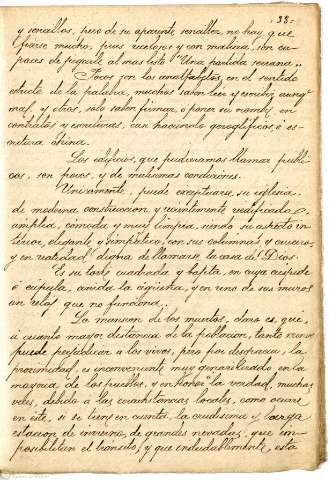 -38-
y sencillos, pero de su aparente sencillez no hay que
fiarse mucho, pues recelosos y con malicia, son ca-
paces de pegarle al mas listo "Una partida serrana".
Pocos son los analfabetos, en el sentido
estricto de la palabra, muchos saben leer y escribir aunq.
mal, y otros, solo saben firmar o poner su nombre en
contratos y escrituras, aun haciendo geroglificos o es-
critura china.
Los edificios, que pudieramos llamar públi-
cos, son pocos, y de malisimas condiciones.
Unicamente, puede exceptuarse, su iglesia
de moderna construcion, y recientemente reedificada,
amplia, cómoda y muy limpia, siendo su aspecto in-
terior, elegante y simpático, con sus columnas y crucero,
y en realidad digna de llamarse la casa de Dios.
Es su torre cuadrada y bajita, en cuya cuspide
o cúpula, anida la cigüeña, y en uno de sus muros
un reloj que no funciona.
La mansion de los muertos, claro es, que
a cuanto mayor distancia de la poblacion, tanto menos
puede perjudicar a los vivos, pero por desgracia, la
proximidad, es inconveniente muy generalizado en la
mayoria de los pueblos, y en honor la verdad, muchas
veces, debido a las circunstancias locales, como ocurre
en este, si se tiene en cuenta, la crudisima y larga
estacion de invierno, de grandes nevadas, que im-
posibilitan el transito, y que indudablemente, esta